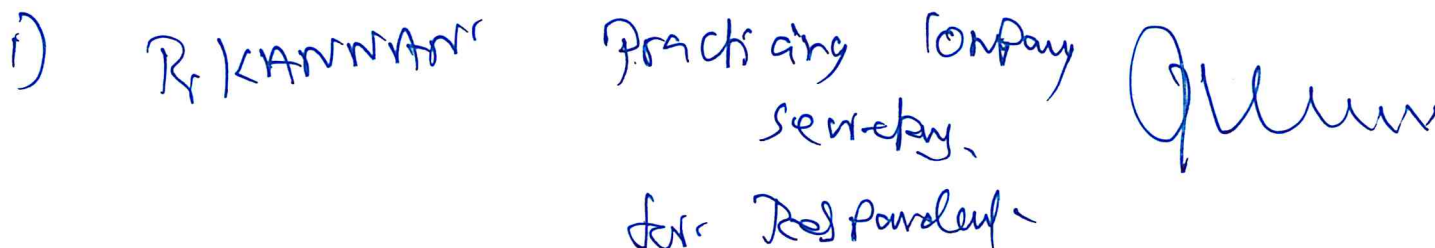 1) R. KANNAN Practising Company
Secretary.
for Respondent